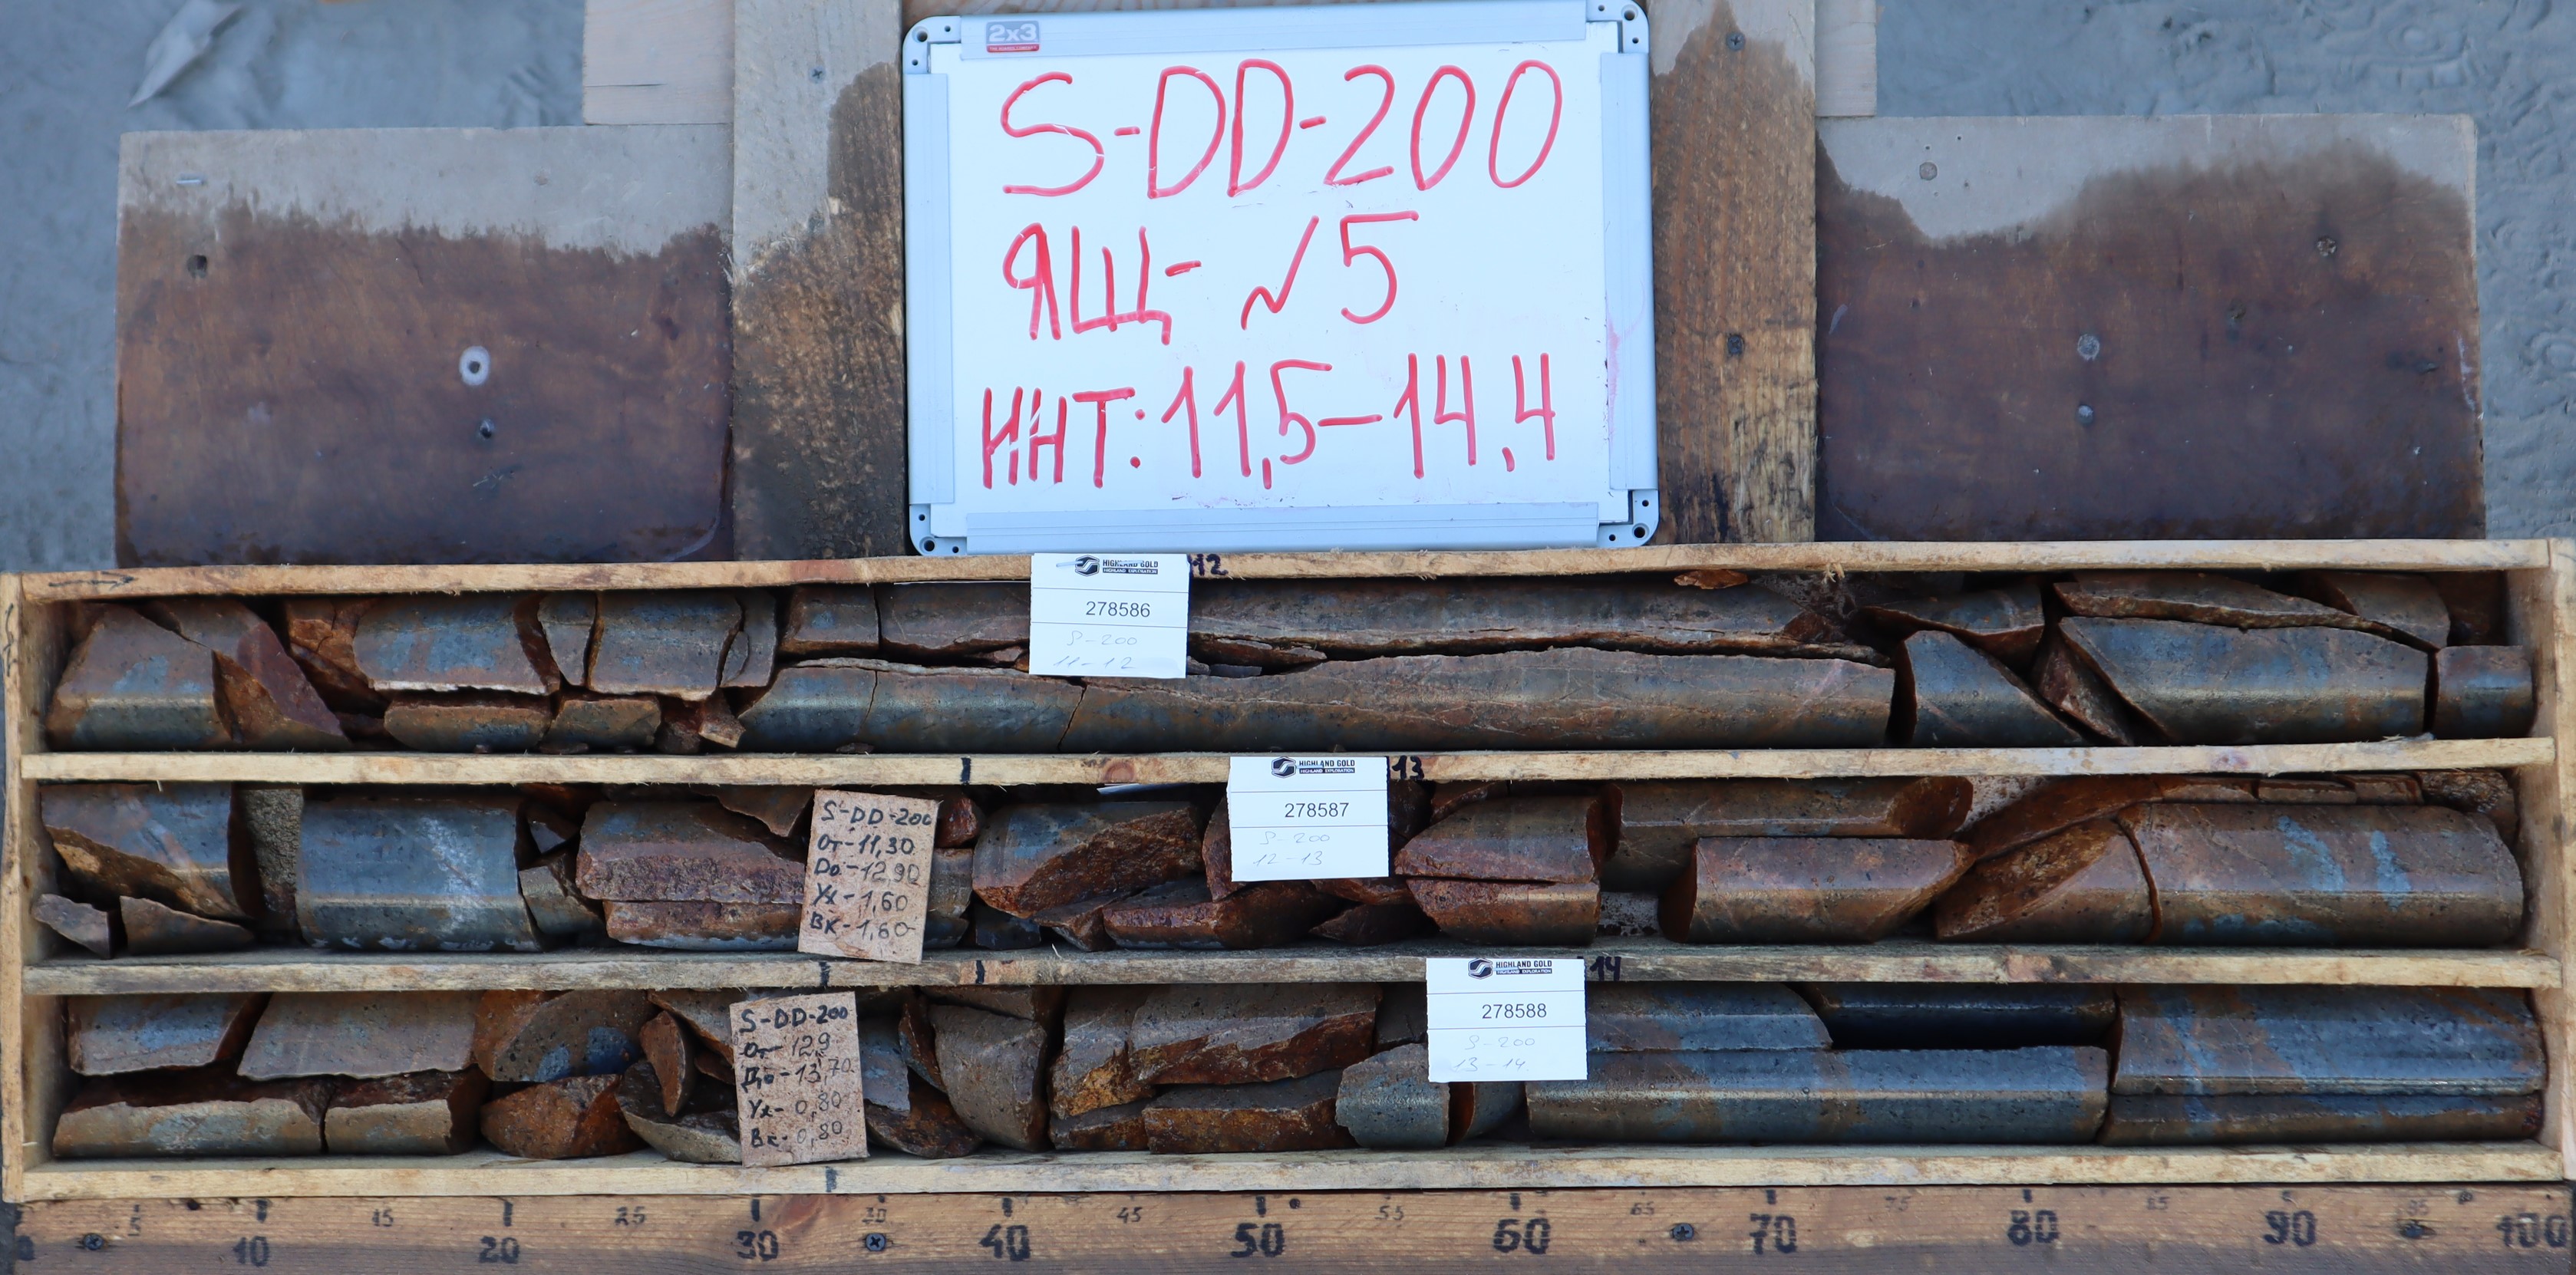 2x3
S-DD-200
ЯЩ- №5
ИНТ: 11,5-14,4
HIGHLAND GOLD
HIGHLAND EXPLORATION
12
278586
S-200
11-12
HIGHLAND GOLD
HIGHLAND EXPLORATION
13
278587
S-200
12-13
S-DD-200
От-11,30
До-12,90
Ух-1,60
Вк-1,60
HIGHLAND GOLD
HIGHLAND EXPLORATION
14
278588
S-200
13-14
S-DD-200
От-12,9
До-13,70
Ух-0,80
Вк-0,80
5 10 15 20 25 30 40 45 50 55 60 65 70 75 80 85 90 95 100